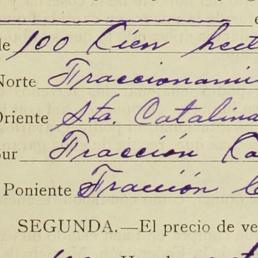 de 100 Cien hect
Norte Fraccionami
Oriente Sta. Catalina
Sur Fracción Ca
Poniente Fracción
SEGUNDA.—El precio de ve